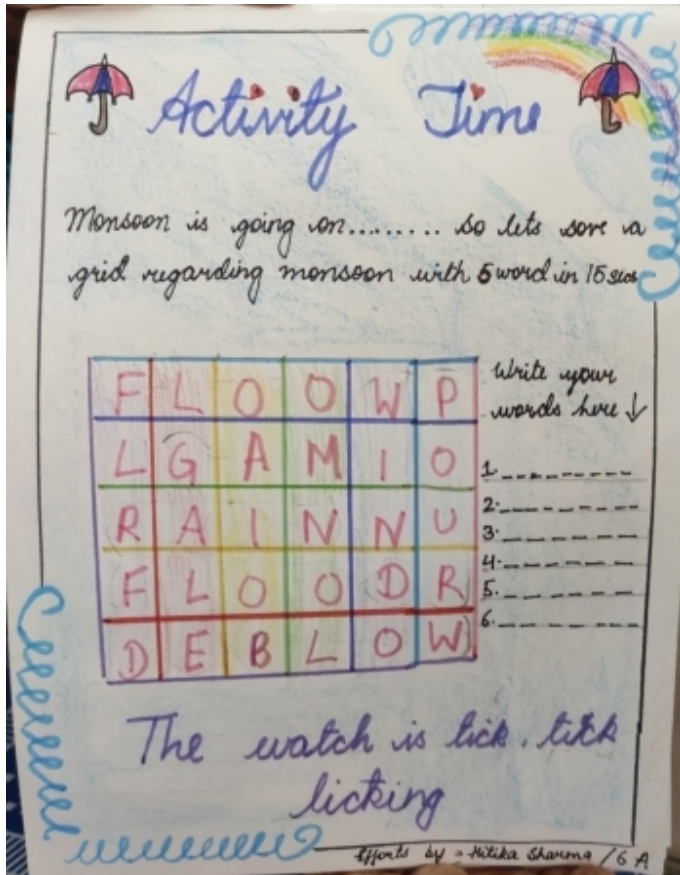 Activity Time
Monsoon is going on........ so lets sove a
grid regarding monsoon with 5 word in 15 secs
F L O O W P
L G A M I O
R A I N N U
F L O O D R
D E B L O W
Write your
words here ↓
1. _ _ _ _ _ _ _ _
2. _ _ _ _ _ _ _
3. _ _ _ _ _ _ _
4. _ _ _ _ _ _ _
5. _ _ _ _ _ _ _
6. _ _ _ _ _ _ _
The watch is tick. tick
licking
Efforts by - Hitika Sharma / 6 A